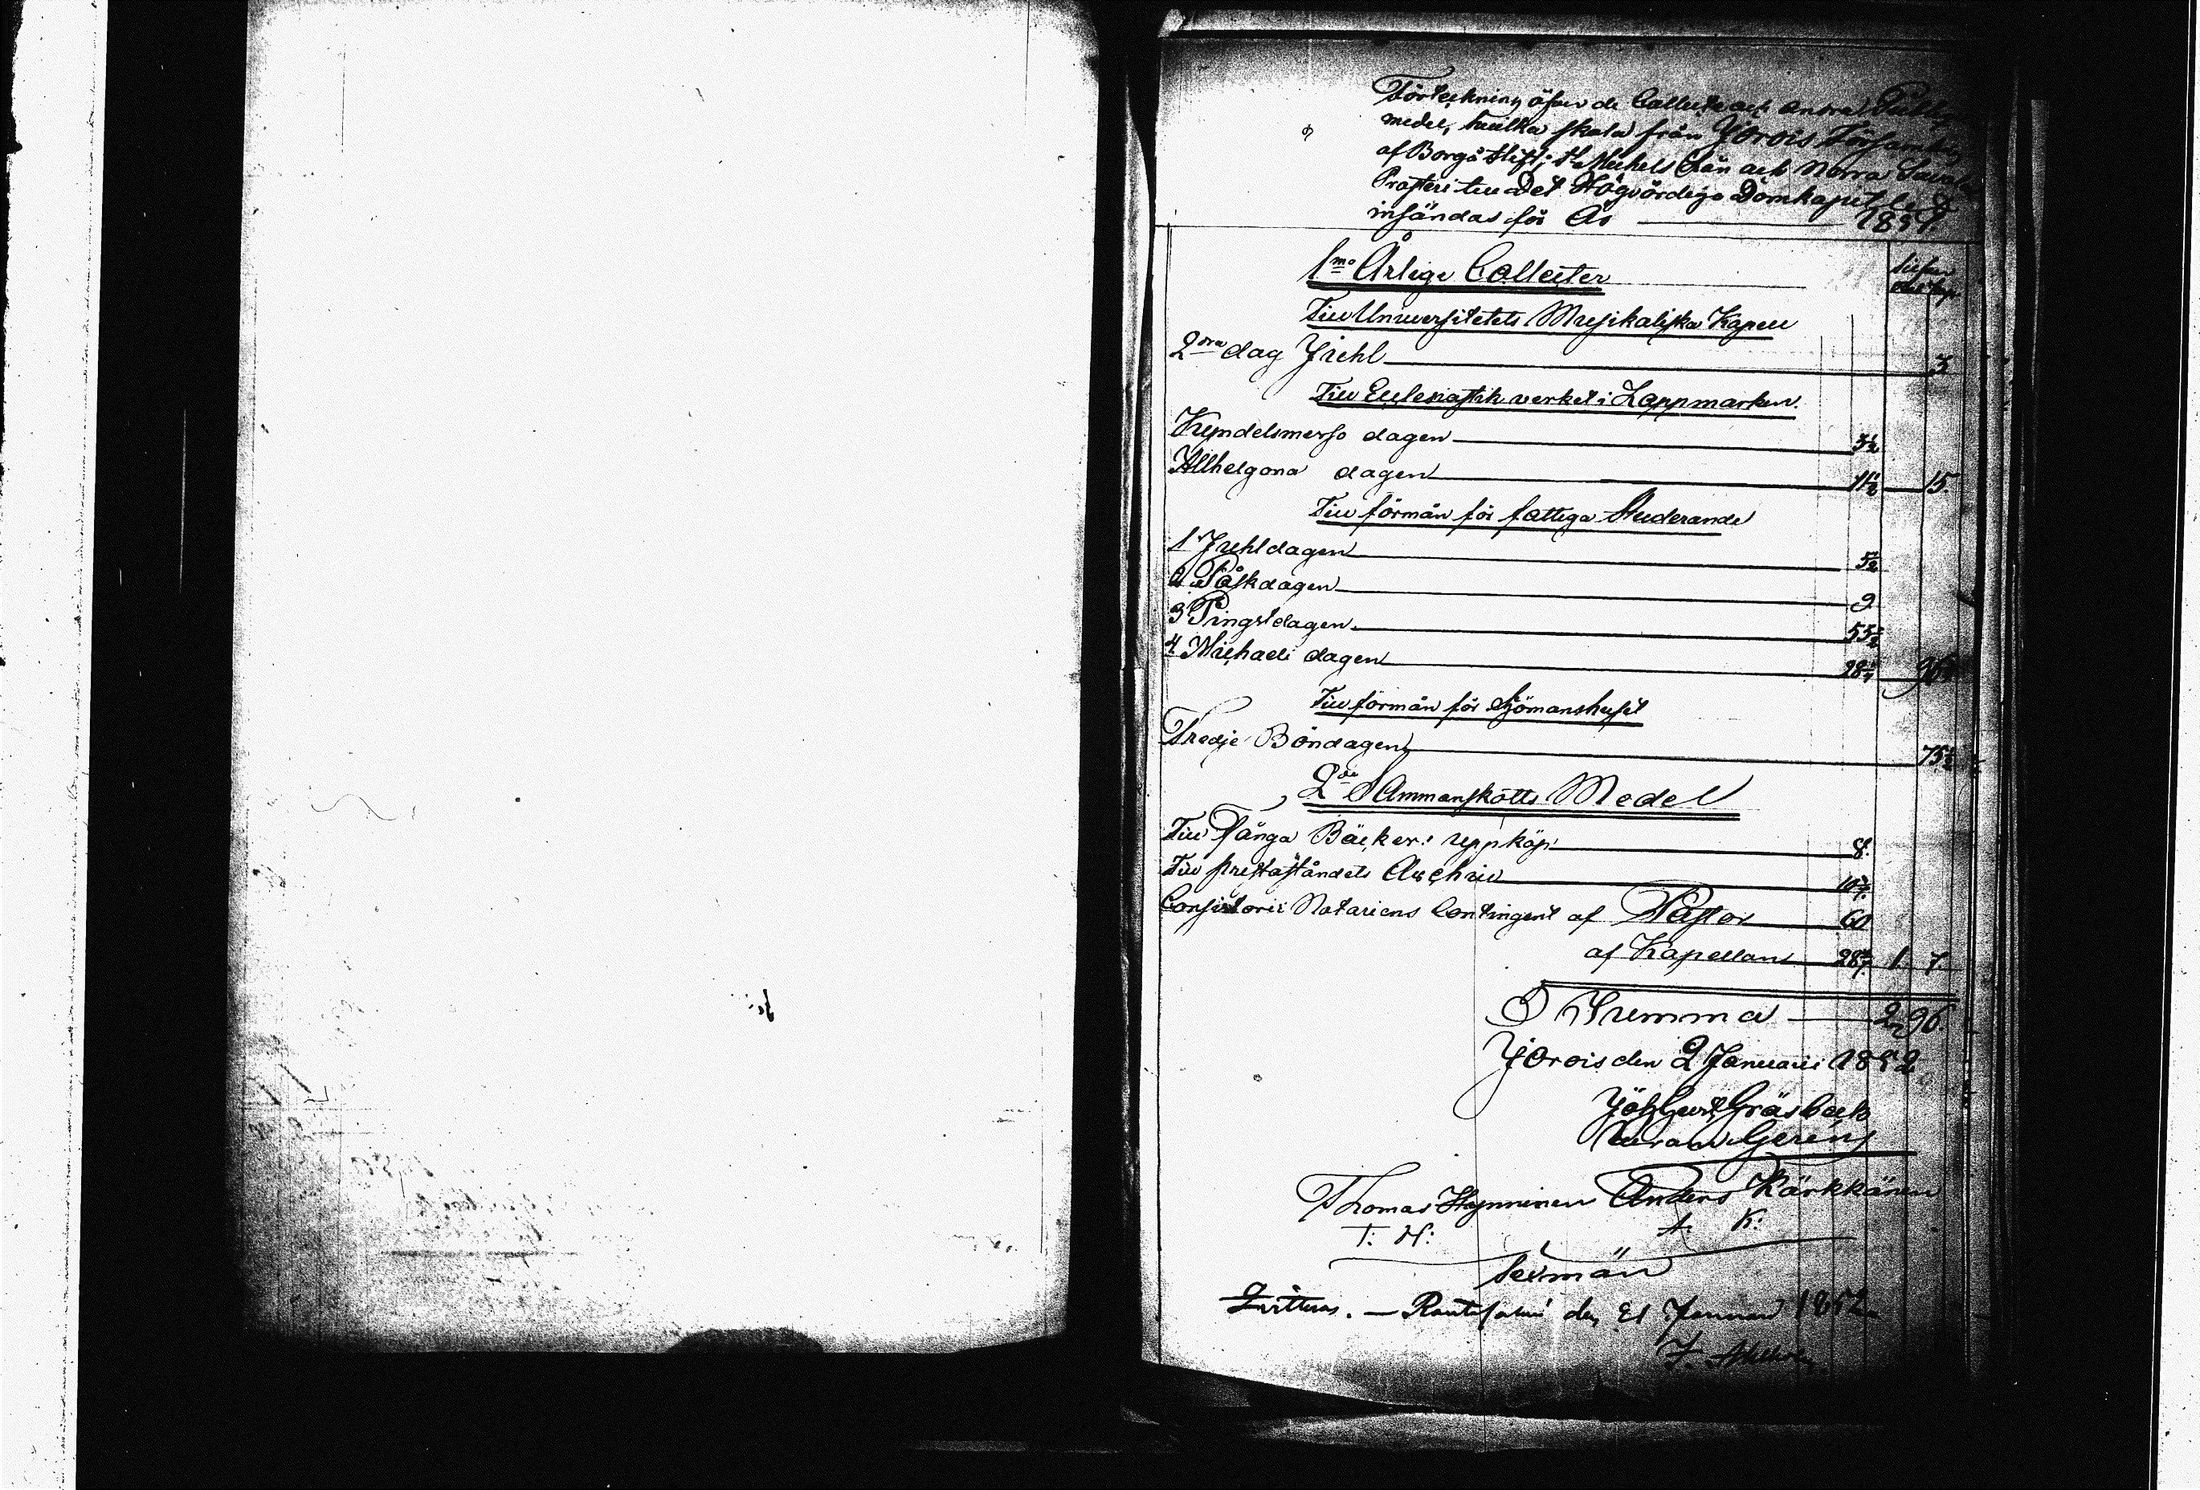 Förteckning öfver de Collecter och andra
medel, hvilka skola från Jorois Församling
af Borgå Stift, St Michels Län och Norra Savolax
Prosteri till Det Högvördiga Domkapitlet
insändas för År 1851.
1mo Årliga Collecter
Silfver
Till Universitetets Musikaliska Kapell
2dra dag Juhl 3
Till Ecclesiastik verket i Lappmarken.
Kyndelsmesso dagen 3½
Allhelgona dagen 11½ 15.
Till förmån för fattiga Studerande
1 Juhldagen 5½
2 Påskdagen 9
3 Pingstdagen 55½
4 Michaeli dagen 28
Till förmån för Sjömanshuset
Tredje Böndagen 75½
2do Sammanskotts Medel
Till Fånga Böcker: uppköp 8.
Till prestaståndets Archiv 10
Consistorii Notariens Contingent af Pastor 60
af Kapellan 28 1. 7.
Summa 2, 96
Jorois den 2 Januarii 1852
Gräsbeck
Thomas Hynninen Anders Kärkkänen
T: H: A: K:
Sexmän
Qvitteras. — Rantasalmi den 21 Januari 1852